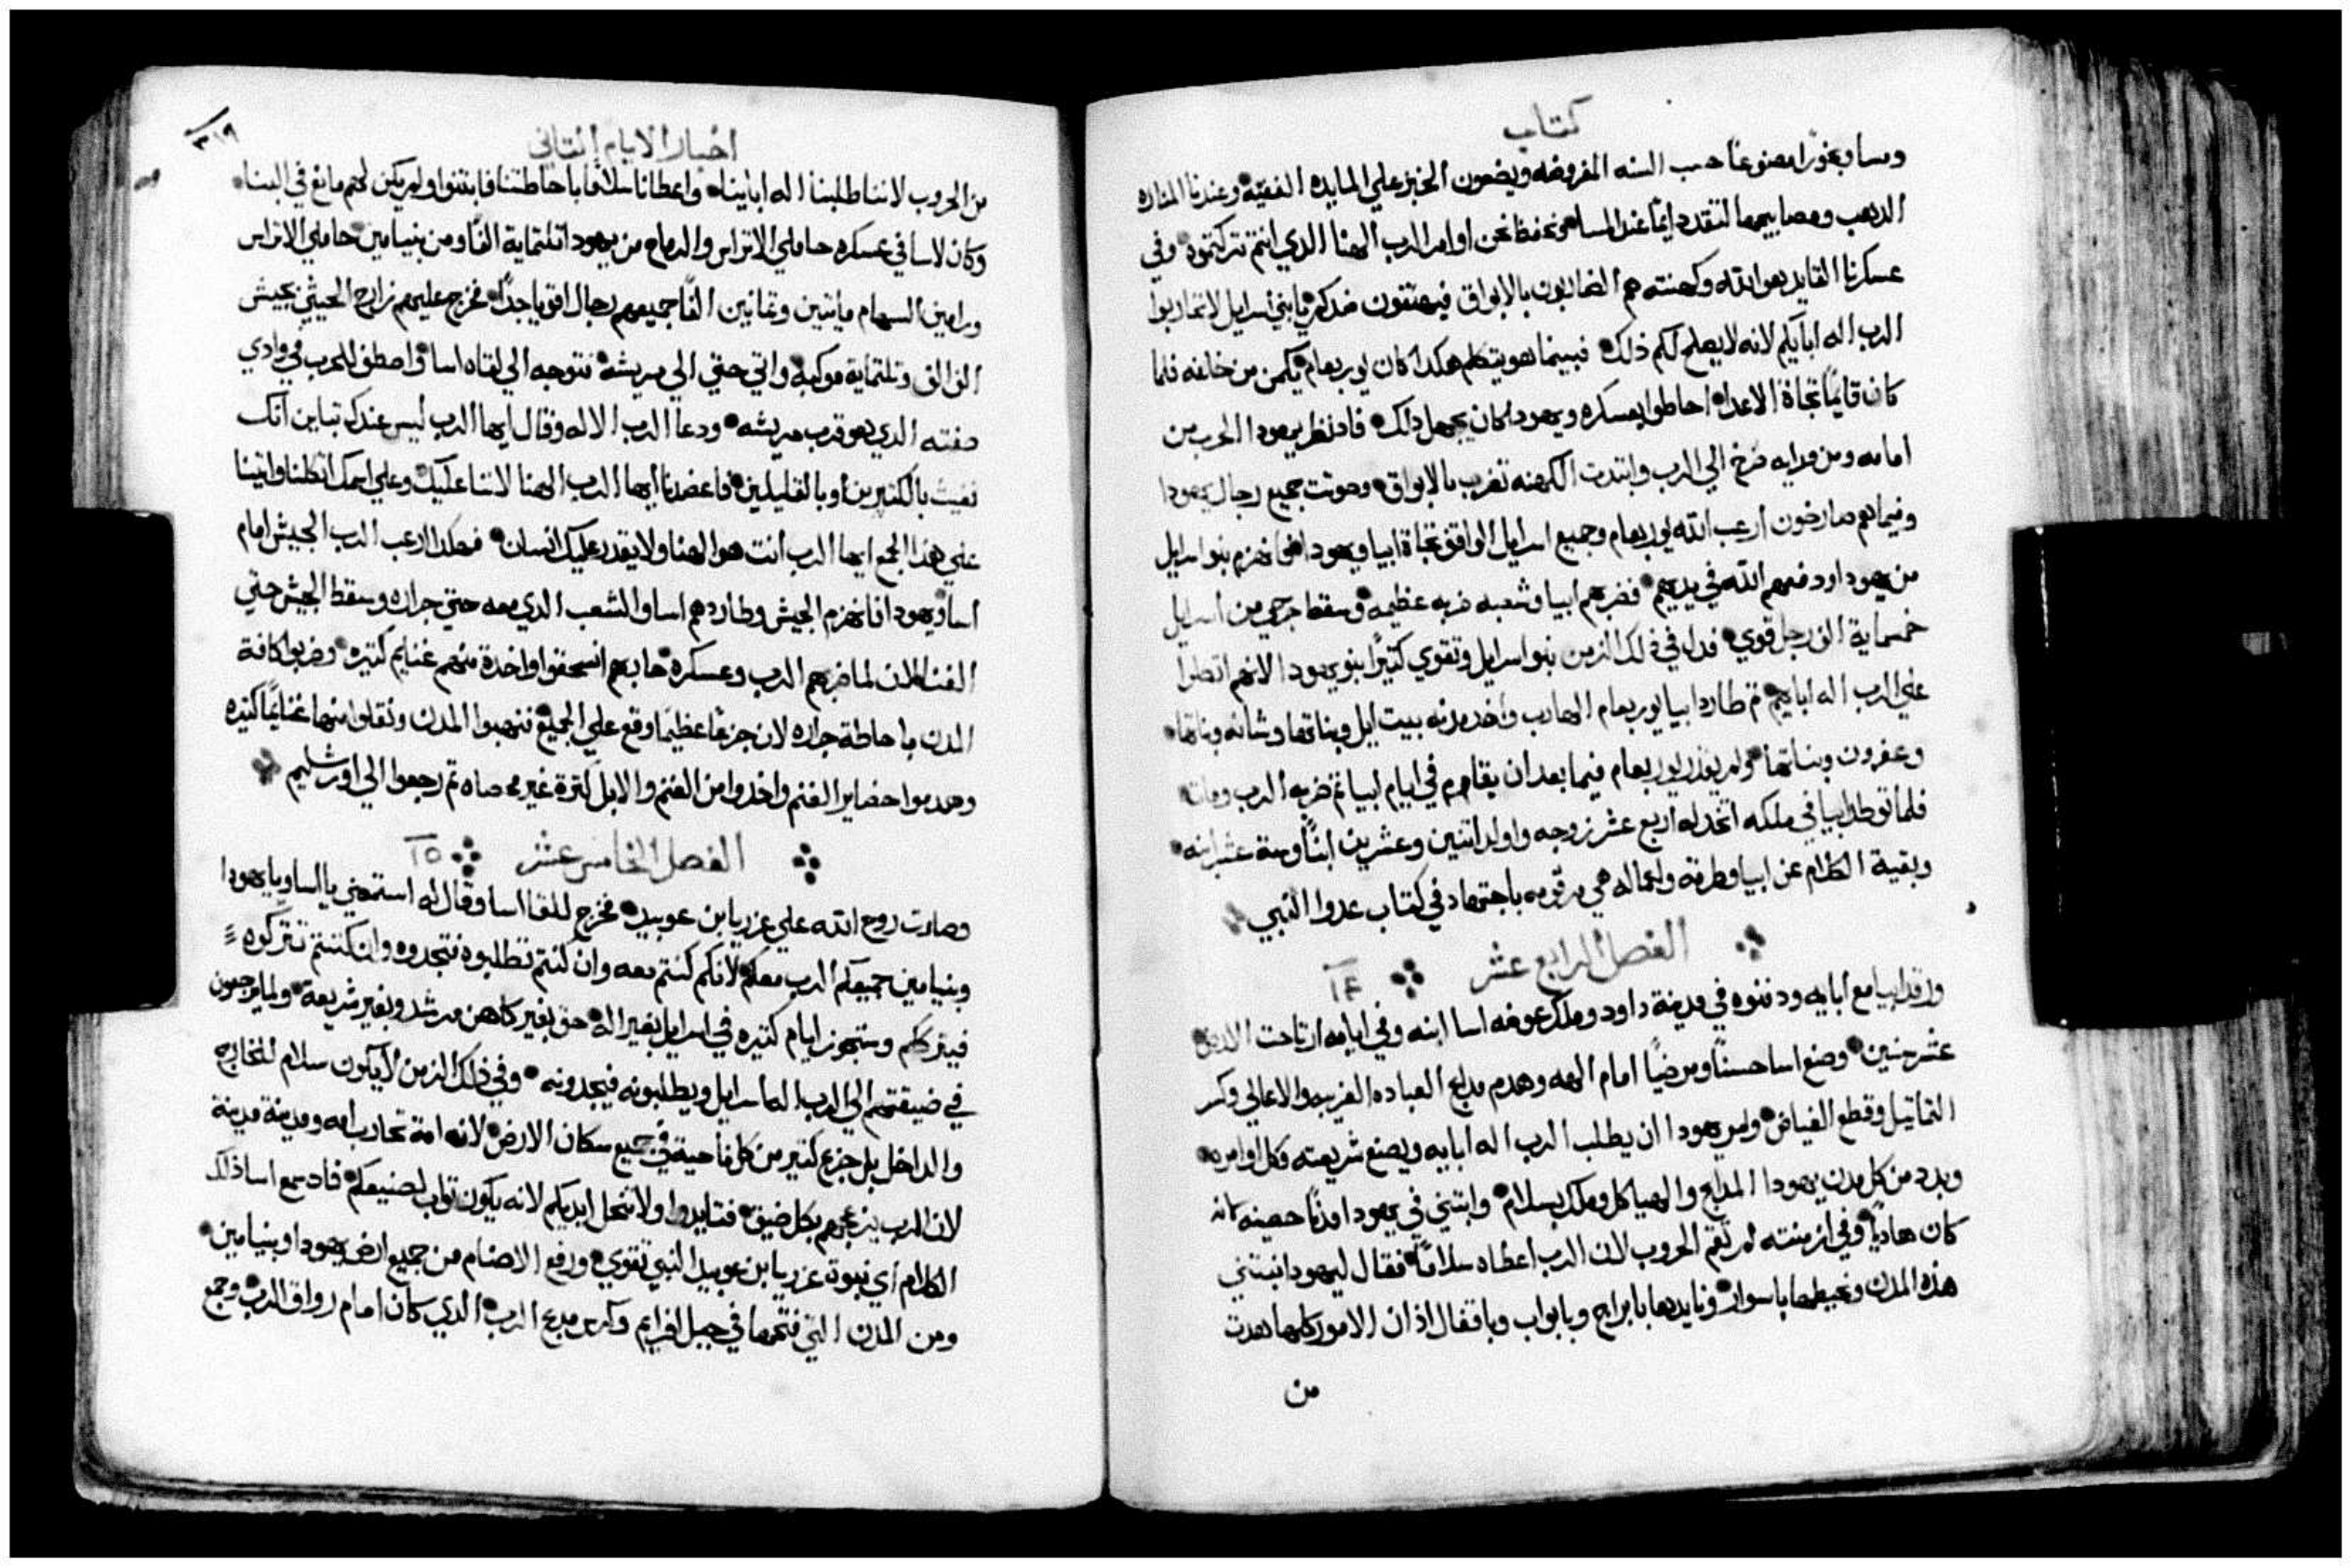 كتاب
ومسا وبخورًا مصنوعًا حسب السنه المفروضه ويضعون الخبز علي المايده النقيه وعندنا المناره
الدهب ومصابيحها لتتقد دايمًا عند المسا ونحفظ نحن اوامر الرب الهنا الدي انتم تركتموه وفي
عسكرنا القايد هو الله وكهنته هم الضاربون بالابواق فيهتفون ضدكم يا بني اسرايل لا تحاربوا
الرب اله ابايكم لانه لا يصلح لكم ذلك فبينما هو يتكلم هكدا كان يوربعام يكمن من خلفه فلما
كان قايمًا تجاة الاعدا احاطوا بعسكره ويهودا كان يجهل ذلك فاد نظر يهودا الحرب من
امامه ومن ورايه صرخ الي الرب وابتدت الكهنه تضرب بالابواق وصوتت جميع رجال يهودا
وفيما هم صارخون ارعب الله يوربعام وجميع اسرايل الواقف تجاة ابيا ويهودا فانهزم بنو اسرايل
من يهودا ودفعهم الله في يديهم فضربهم ابيا وشعبه ضربه عظيمه وسقط جرحي من اسرايل
خمسماية الف رجل قوي فدل في ذلك الزمن بنو اسرايل وتقوي كتيرًا بنو يهودا لانهم اتكلوا
علي الرب اله ابايهم تم طارد ابيا يوربعام الهارب واخد مدنه بيت ايل وبناتها وشانه وبناتها
وعفرون وبناتها ولم يقدر يوربعام فيما بعد ان يقاوم في ايام ابيا تم ضربه الرب ومات
فلما توطد ابيا في ملكه اتخد له اربع عشر زوجه واولد اتنين وعشرين ابنًا وستة عشر ابنه
وبقية الكلام عن ابيا وطرقه واعماله هي مرقومه باجتهاد في كتاب عدوا النبي
الفصل الرابع عشر ١٤
ورقد ابيا مع ابايه ودفنوه في مدينة داود وملك عوضه اسا ابنه وفي ايامه ارتاحت الارض
عشر سنين وصنع اسا حسنًا ومرضيًا امام الهه وهدم مدابح العباده الغريبه والاعالي وكسر
التماتيل وقطع الغياض وامر يهودا ان يطلب الرب اله ابايه ويصنع شريعته وكل اوامره
وبدد من كل مدن يهودا المدابح والهياكل وملك بسلام وابتني في يهودا مدنًا حصينه لانه
كان هاديًا وفي ازمنته لم تقم الحروب لان الرب اعطاه سلامًا فقال ليهودا نبتني
هذه المدن ونحيطها باسوار ونايدها بابراج وبابواب وباقفال اذ ان الامور كلها هدت
من
٣١٩
اخبار الايام التاني
من الحروب لاننا طلبنا اله ابايناه واعطانا سلامًا باحاطتنا فابتنوا ولم يكن لهم مانع في البنا
وكان لاسا في عسكره حاملي الاتراس والرماح من يهودا تلتماية الفًا ومن بنيامين حاملي الاتراس
ورامين السهام مايتين وتمانين الفًا جميعهم رجال اقويا جدًا فخرج عليهم زارح الحبشي بجيش
الف الف وتلتماية مركبه واتي حتي الي مريشه فتوجه الي لقاه اسا واصطف للحرب في وادي
صفته الدي هو قرب مريشه ودعا الرب الاله وقال ايها الرب ليس عندك تباين انك
تغيث بالكتيرين او بالقليلين فاعضدنا ايها الرب الهنا لاننا عليك وعلي اسمك اتكلنا واتينا
علي هذا الجمع ايها الرب انت هو الهنا ولا يقدر عليك انسان فهكدا ارعب الرب الجيش امام
اسا ويهودا فانهزم الجيش وطاردهم اسا والشعب الدي معه حتي جراره وسقط الجيش حتي
الفنا لان لما ضربهم الرب وعسكره حاربهم انسحقوا واخدة منهم غنايم كتيره وضربوا كافة
المدن باحاطة جراره لان جزعًا عظيمًا وقع علي الجميع فنهبوا المدن ونقلوا منها غنايمًا كتيره
وهدموا حضاير الغنم واخدوا من الغنم والابل كترة غير محصاه تم رجعوا الي اورشليم
الفصل الخامس عشر ١٥
وصارت روح الله علي عزريا ابن عوبيد فخرج للقا اسا وقال له استمعني يا اسا ويا يهودا
وبنيامين جميعكم الرب معكم لانكم كنتم معه وان كنتم تطلبوه فتجدوه وان كنتم تتركوه
فيترككم وستجوز ايام كتيره في اسرايل بغير اله حق بغير كاهن مرشد وبغير شريعة ولما يرجعون
في ضيقتهم الي الرب اله اسرايل ويطلبونه فيجدونه وفي ذلك الزمن لا يكون سلام للخارج
والداخل بل جزع كتير من كل ناحية في جميع سكان الارض لانه امة تحارب امه ومدينة مدينة
لان الرب يزعجهم بكل ضيق فتايدوا ولا تنحل ايديكم لانه يكون تواب لصنيعكم فاد سمع اسا ذلك
الكلام اي نبوة عزريا ابن عوبيد النبي تقوي ورفع الاصنام من جميع ارض يهودا وبنيامين
ومن المدن التي فتحها في جبل افرايم وكرس مدبح الرب الدي كان امام رواق الرب وجمع